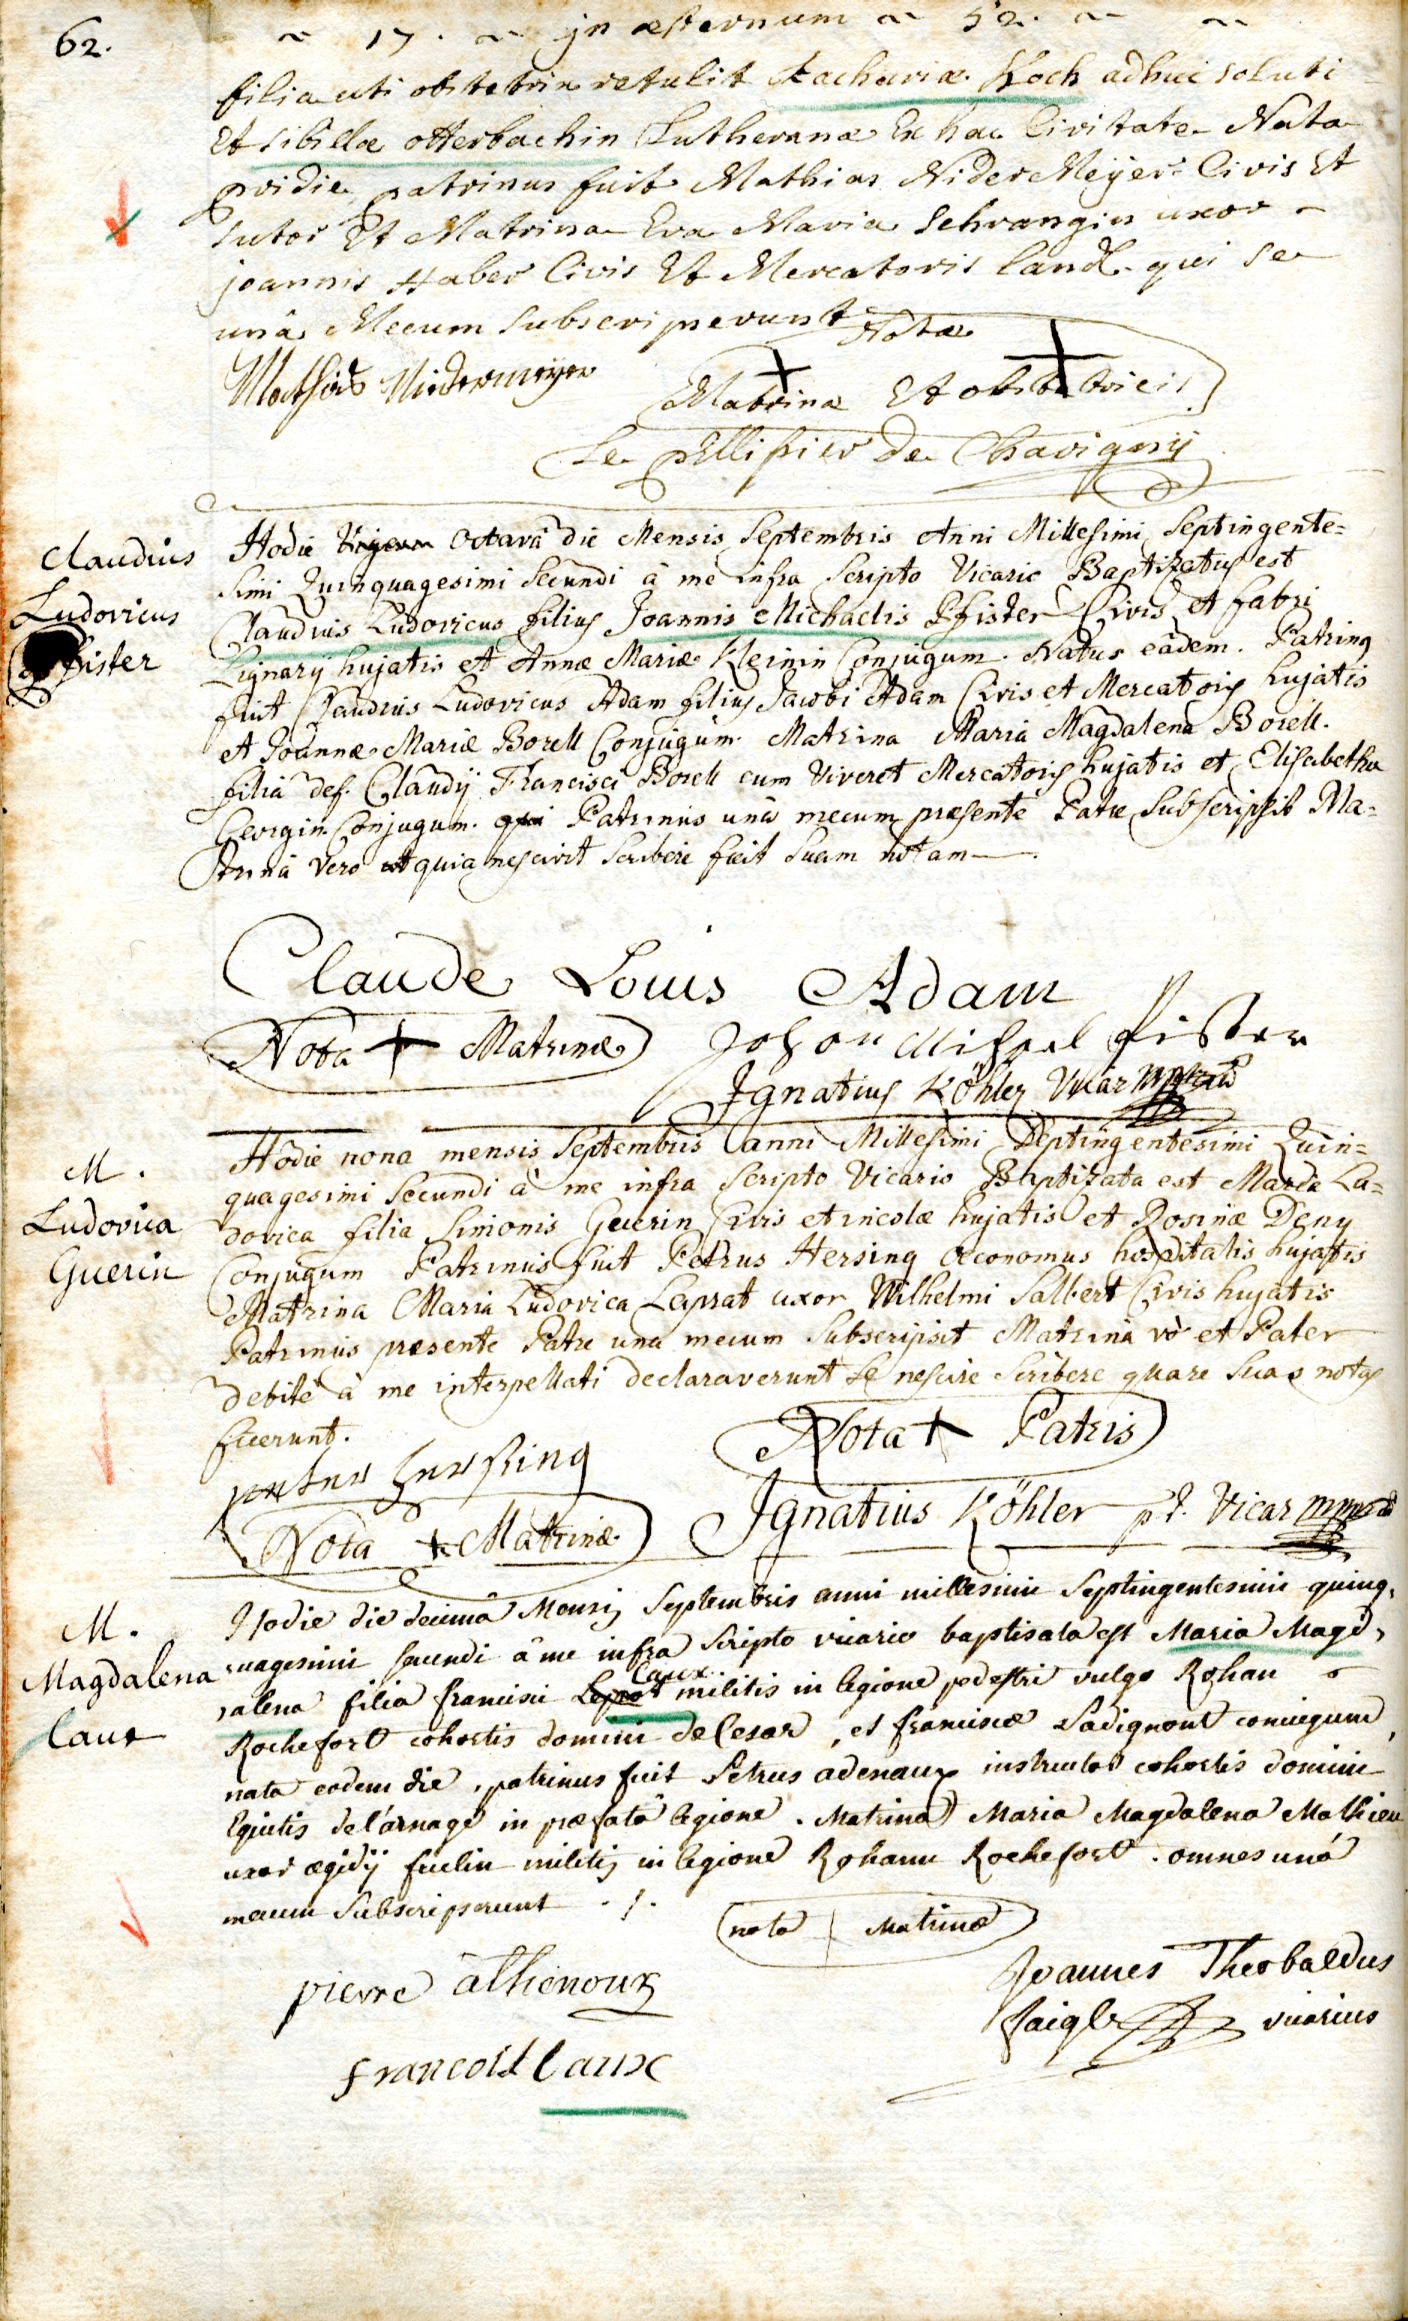 62.
17. in æternum 52.
filia uti obstetrix retulit Zachariæ Koch adhuc soluti
Et sibillæ otterbachin Lutheranæ Ex hac Civitate Nata
pridie, patrinus fuit Mathias NiderMeÿer Civis Et
sutor Et Matrina Eva Maria Schrangin uxor
joannis Haber Civis Et Mercatoris Land. qui se
unâ Mecum subscripserunt
Notæ
Mathias Niedermeyer
Matrinæ Et obstetricis
Le Pellissier De Chavignÿ
Claudius
Ludovicus
Pfister
Hodie octavâ die Mensis Septembris Anni Millesimi Septingente=
simi Quinquagesimi Secundi à me infra Scripto Vicario Baptizatus est
Claudius Ludovicus filius Joannis Michaelis Pfister Civis et fabri
Lignarÿ hujatis et Annæ Mariæ Kleinin Conjugum. Natus eâdem. Patrinus
fuit Claudius Ludovicus Adam filius Jacobi Adam Civis et Mercatoris hujatis
et Joannæ Mariæ Borell Conjugum. Matrina Maria Magdalena Borell.
filia def. Claudÿ Francisci Borell cum Viveret Mercatoris hujatis et Elisabetha
Georgin Conjugum. Patrinus unà mecum præsente Patre Subscripsit Ma=
trina Vero quia nescivit Scribere fecit Suam notam
Claude Louis Adam
Nota Matrinæ
Johan Michael Pister
Ignatius Köhler Vicar
M.
Ludovica
Guerin
Hodie nona mensis Septembris anni Millesimi Septingentesimi Quin=
quagesimi Secundi à me infra Scripto Vicario Baptizata est Maria Lu=
dovica filia Simonis Guerin Civis et incolæ hujatis et Rosinæ Deny
Conjugum Patrinus fuit Petrus Hersing Œconomus hospitalis hujatis
Matrina Maria Ludovica Laprat uxor Wilhelmi Salbert Civis hujatis
Patrinus præsente Patre una mecum Subscripsit Matrina vò et Pater
debite à me interpellati declaraverunt se nescire Scribere quare Suas notas
fecerunt.
Nota Patris
peter hersing
Nota Matrinæ
Ignatius Köhler p.t. Vicar
M.
Magdalena
Caux
Hodie die decimâ Mensis Septembris anni millesimi Septingentesimi quinq,
uagesimi secundi â me infra scripto vicario baptisata est Maria Magd,
alena filia francisci Caux militis in legione pedestri vulgo Rohan
Rochefort cohortis domini de Cesar, et franciscæ Sadignont coniugum,
nata eodem die, patrinus fuit Petrus adenaux instructor cohortis domini
Equitis de l'arnage in præfatâ legione. Matrina Maria Magdalena Mathieu
uxor ægidÿ fuelin militis in legione Rohann Rochefort. omnes unâ
mecum subscripserunt
nota Matrinæ
pierre âthenoux
Joannes Theobaldus
Jaigle vicarius
francois Caux